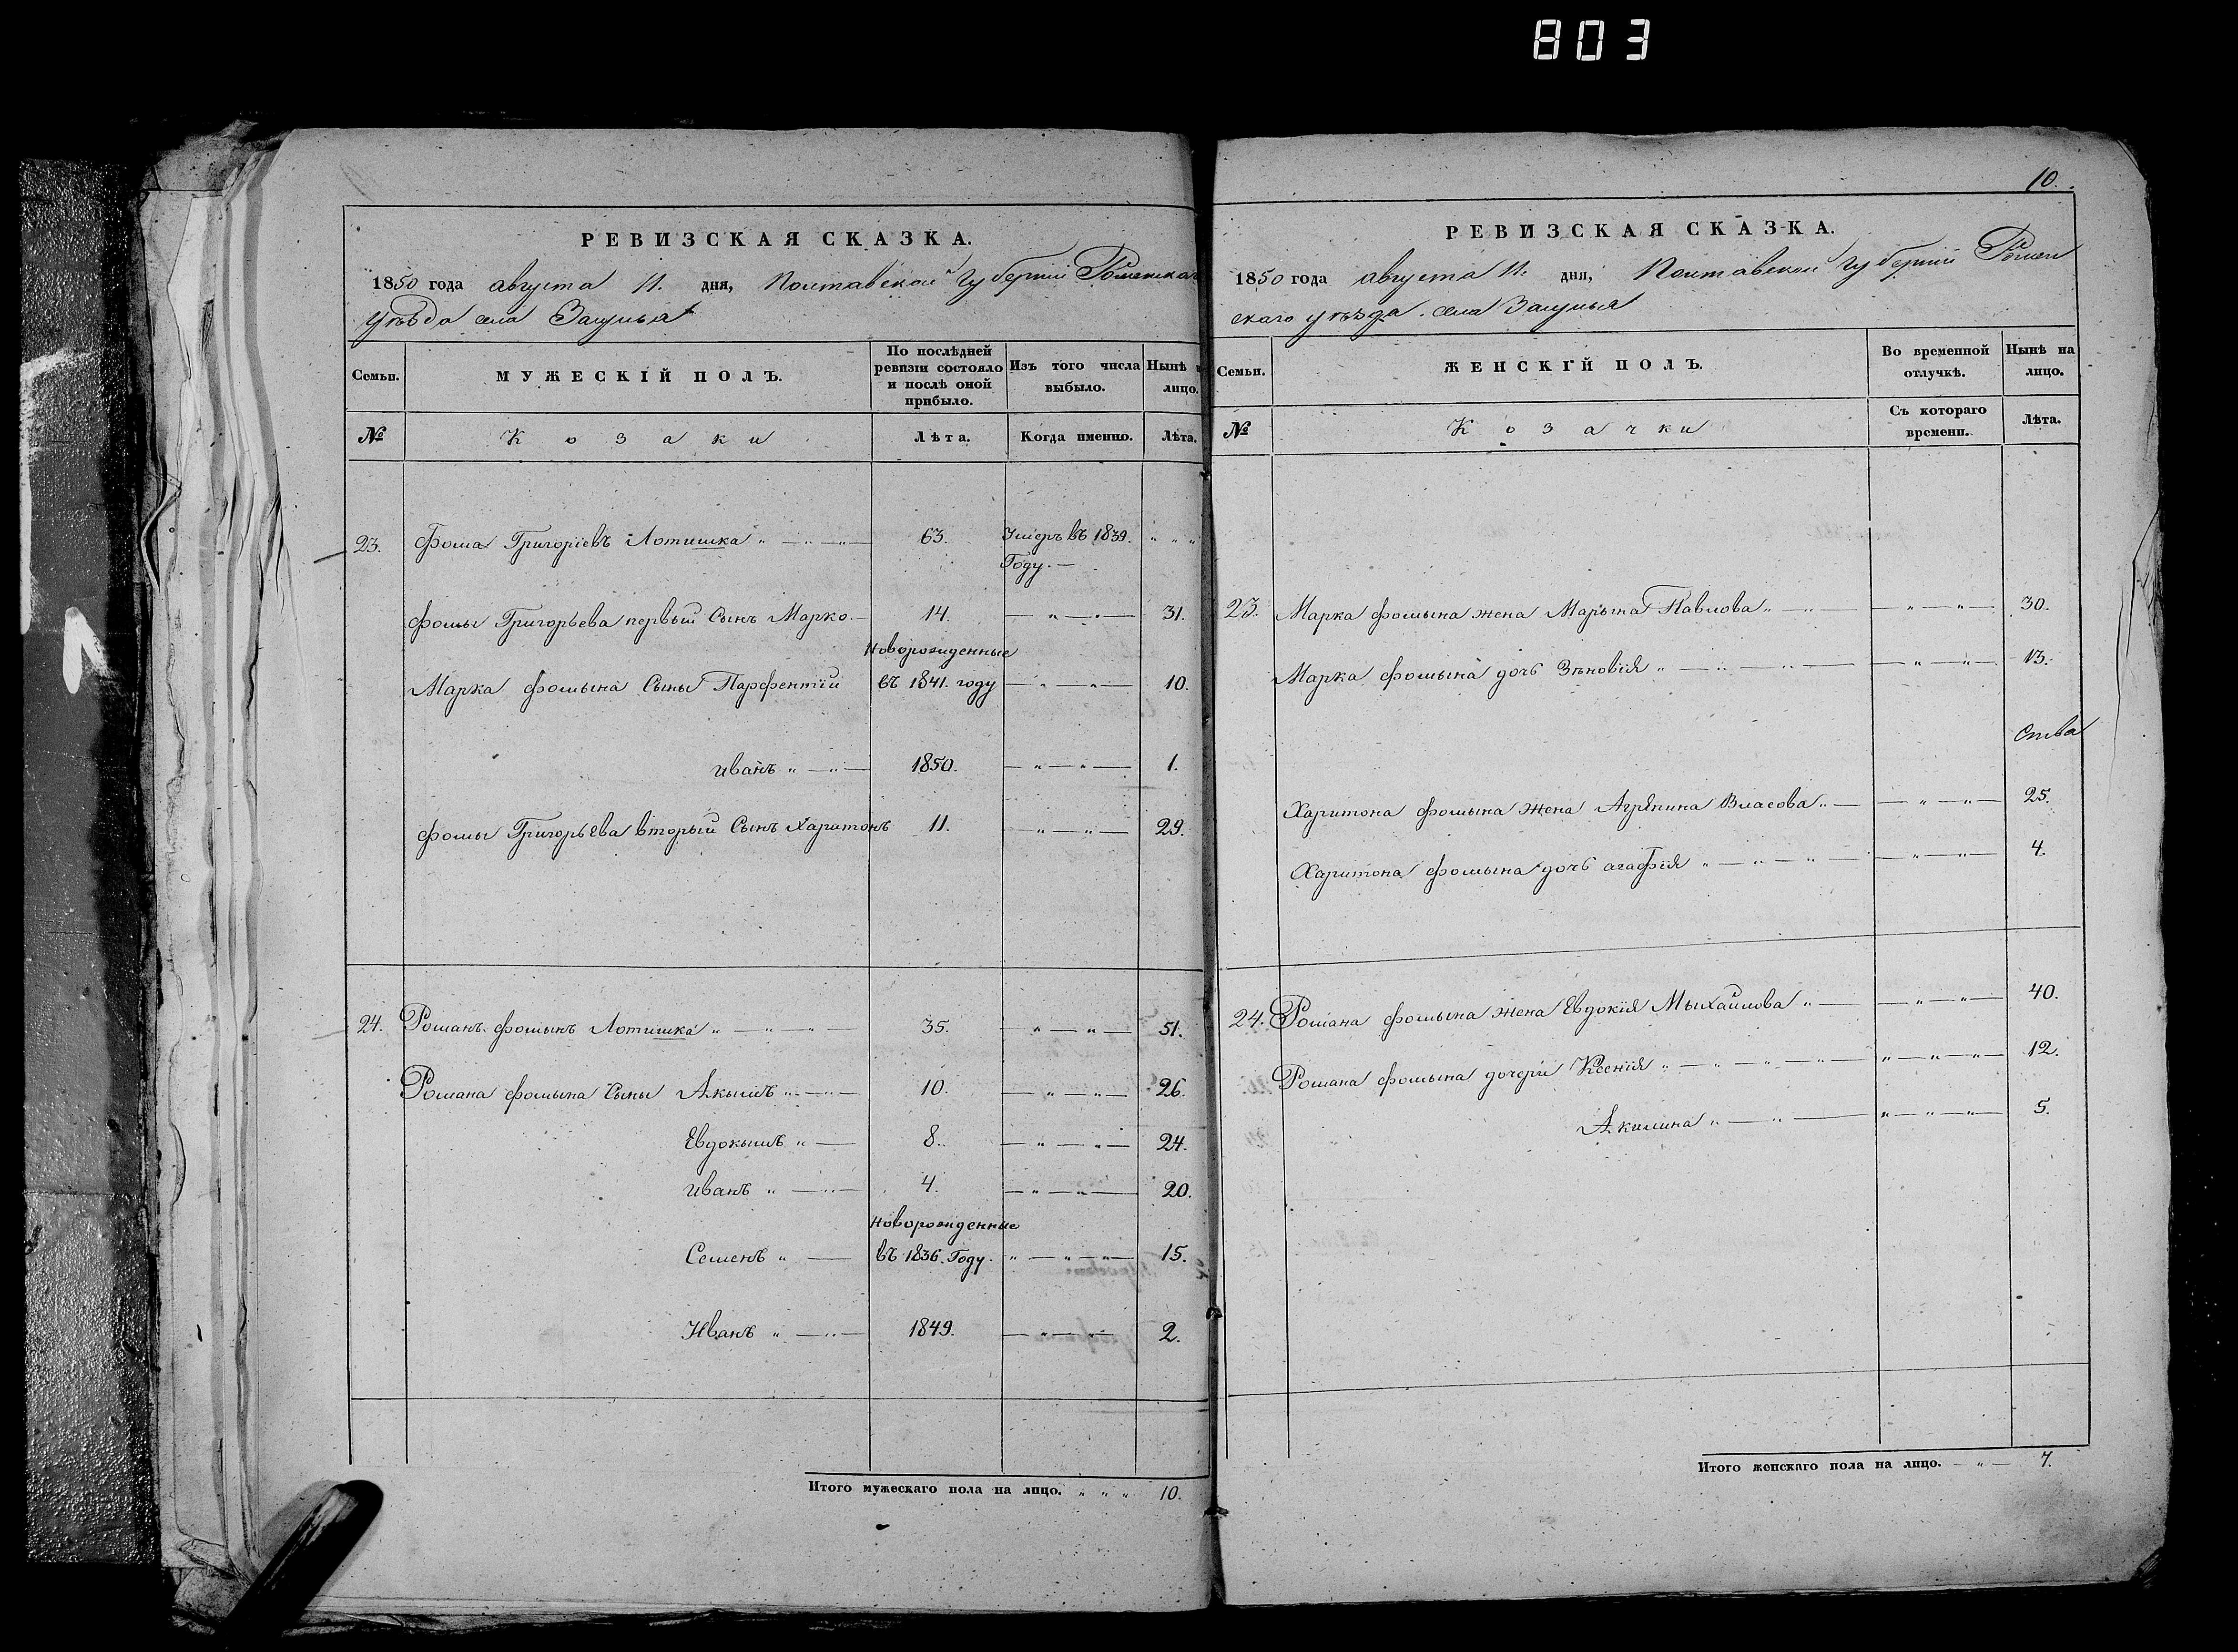 803
РЕВИЗСКАЯ СКАЗКА.
1850 года августа 11. дня, Полтавской Губернии Роменскаго
уѣзда села Засулья
Семьи.
МУЖЕСКІЙ ПОЛЪ.
По послѣдней ревизіи состояло и послѣ оной прибыло.
Изъ того числа выбыло.
Нынѣ на лицо.
№
Козаки
Лѣта.
Когда именно.
Лѣта.
23. Фома Григоріевъ Лотишка 63. Умеръ въ 1839.
Году.
Фомы Григорьева первый Сынъ Марко 14. 31.
Новорожденные
Марка Фомына Сыны Парфентій въ 1841. году 10.
иванъ 1850. 1.
Фомы Григорьева вторый Сынъ Харитонъ 11. 29.
24. Романъ Фомынъ Лотишка 35. 51.
Романа Фомына Сыны Акымъ 10. 26.
Евдокымъ 8. 24.
иванъ 4. 20.
Новорожденные
Семенъ въ 1836. Году. 15.
Иванъ 1849. 2.
Итого мужескаго пола на лицо. 10.
10.
РЕВИЗСКАЯ СКАЗКА.
1850 года августа 11. дня, Полтавской Губернии Ромен
скаго уѣзда. села Засулья
Семьи.
ЖЕНСКІЙ ПОЛЪ.
Во временной отлучкѣ.
Нынѣ на лицо.
№
Козачки
Съ котораго времени.
Лѣта.
23. Марка Фомына жена Марына Павлова 30.
Марка Фомына дочь Зѣновія 13.
Харитона Фомына жена Агрепина Власова 25.
Харитона Фомына дочь агафія 4.
24. Романа Фомына жена Евдокия Мыхайлова 40.
Романа Фомына дочери Ксенія 12.
Акилина 5.
Итого женскаго пола на лицо. 7.